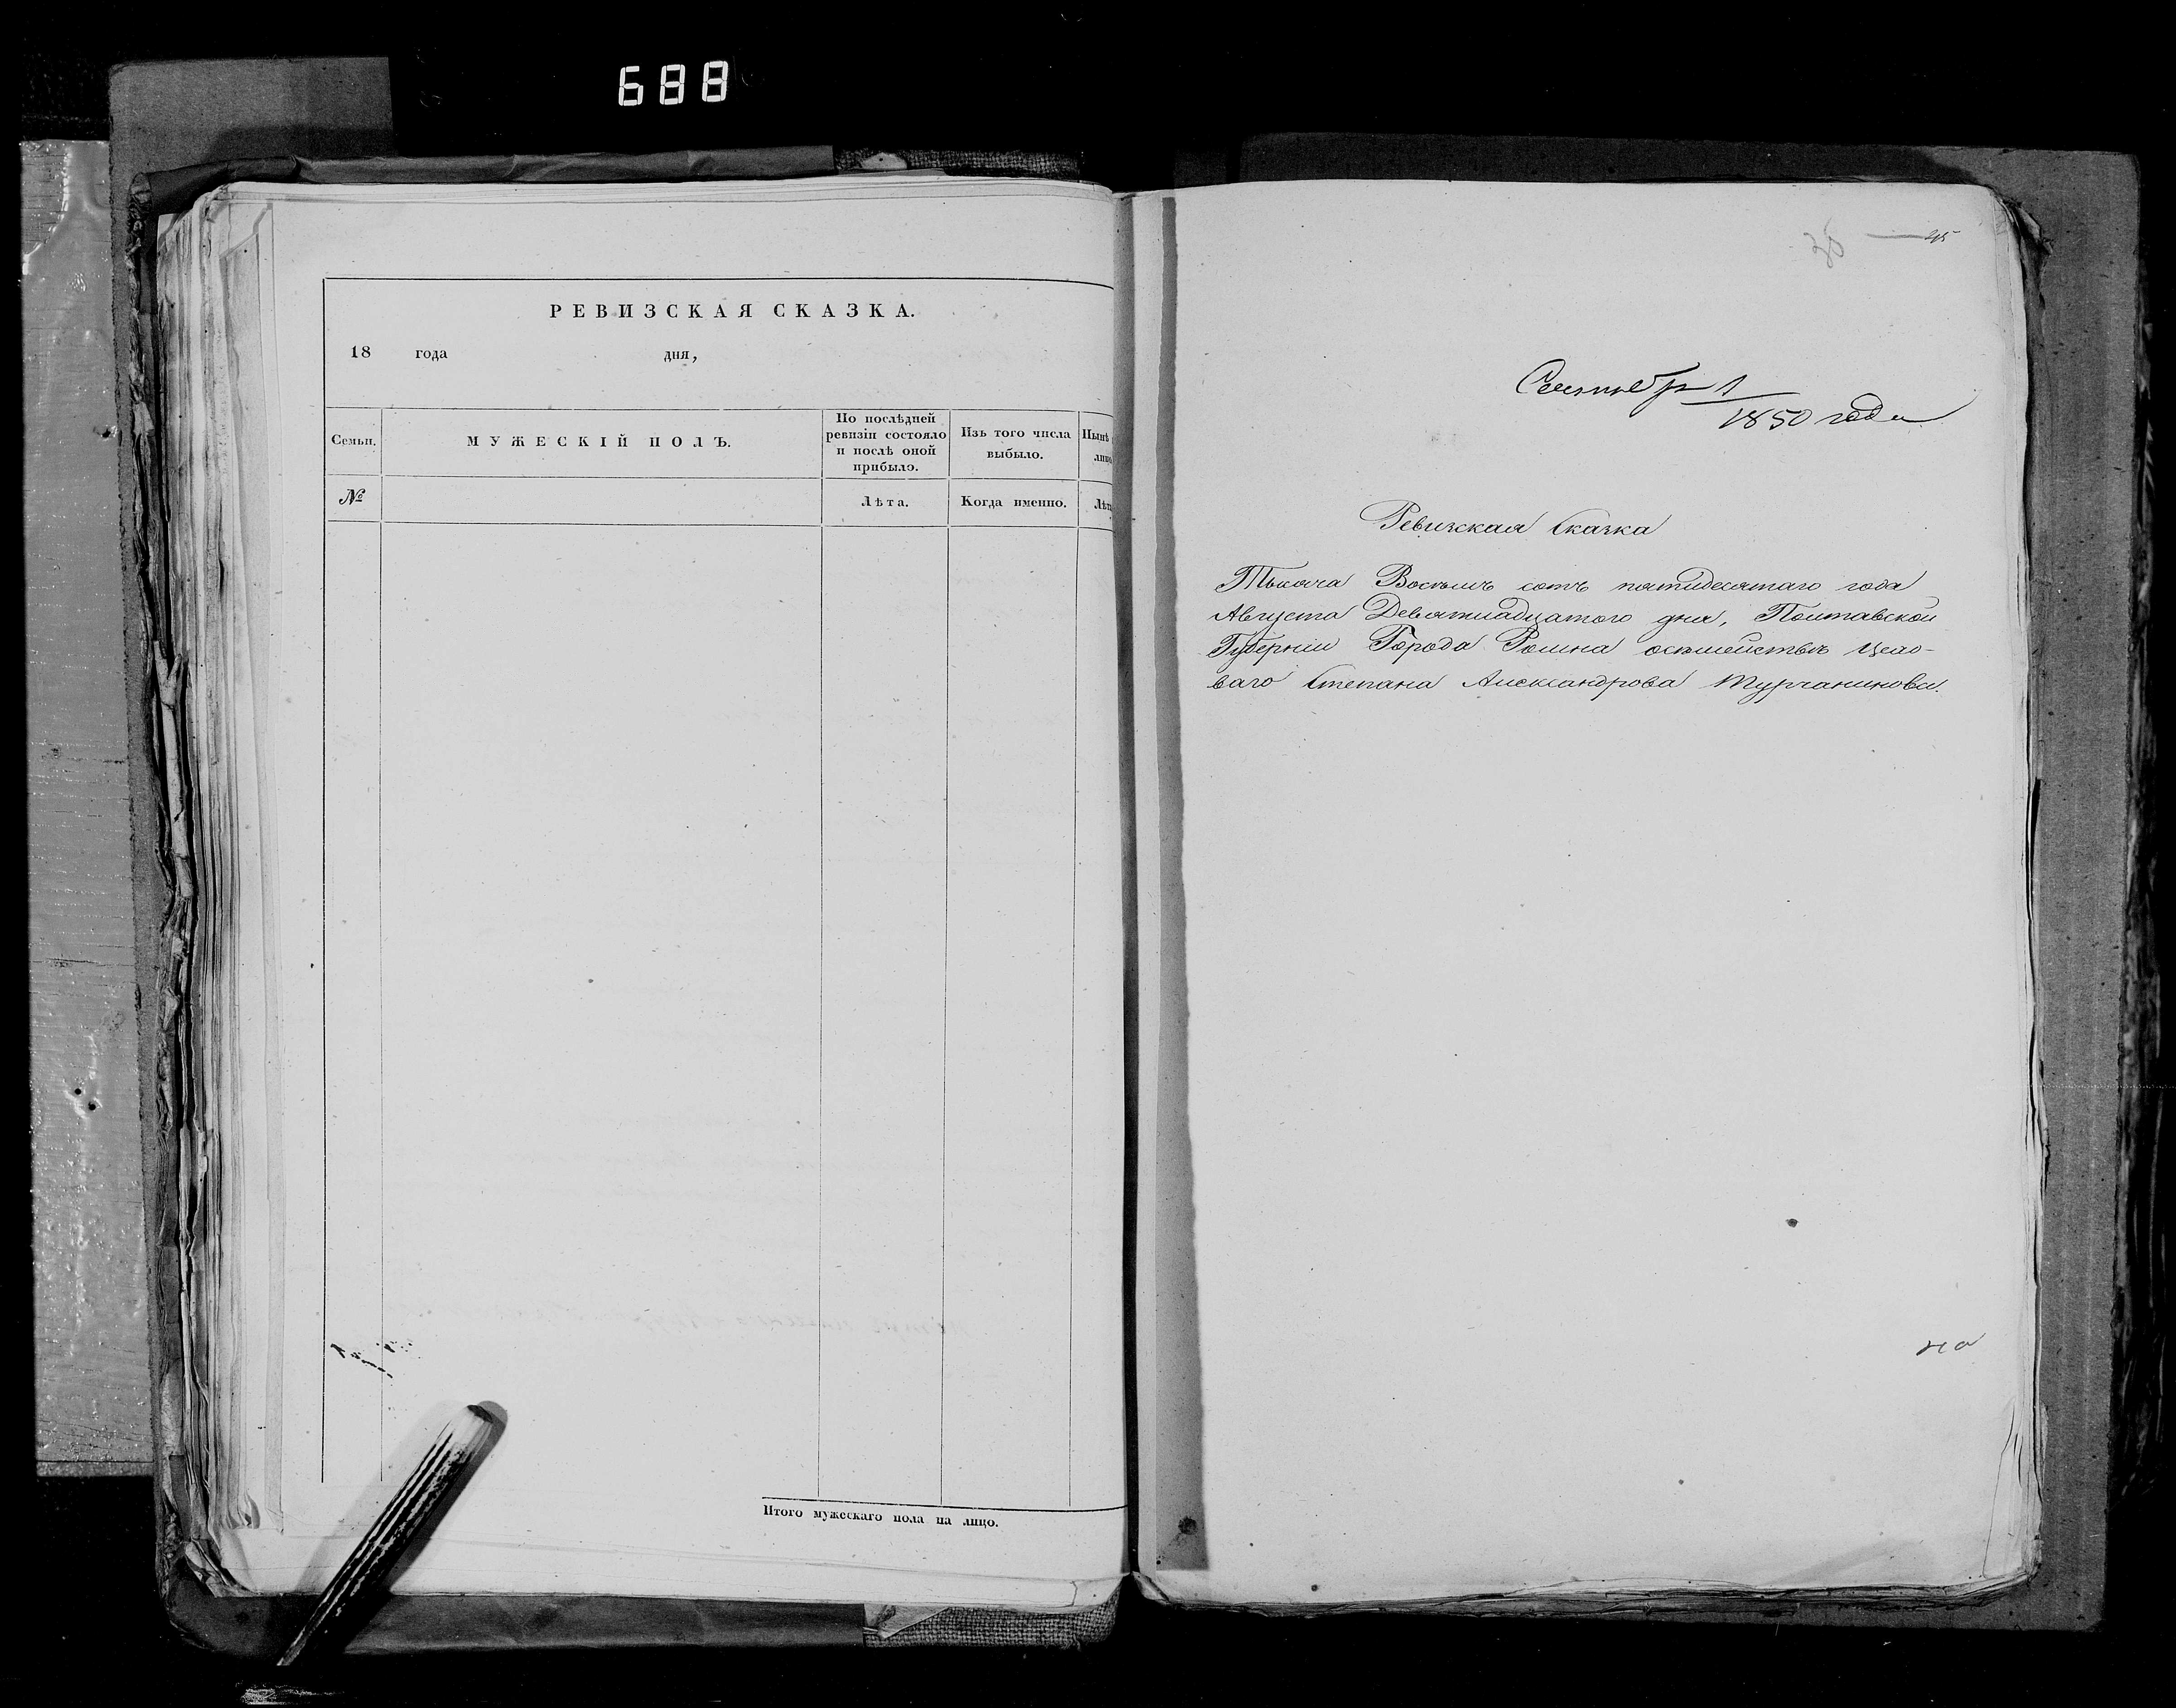 688
РЕВИЗСКАЯ СКАЗКА.
18 года дня,
Семьи.
МУЖЕСКІЙ ПОЛЪ.
По послѣдней
ревизіи состояло
и послѣ оной
прибыло.
Изъ того числа
выбыло.
Нынѣ
лицо
№
Лѣта.
Когда именно.
Лѣт
Итого мужескаго пола на лицо.
45
Сентября 1
1850 года
Ревизская Сказка
Тысяча Восемь сотъ пятидесятаго года
Августа Девятнадцатого дня, Полтавской
Губерніи Города Ромна
ваго Степана Александрова Турчанинова.
на